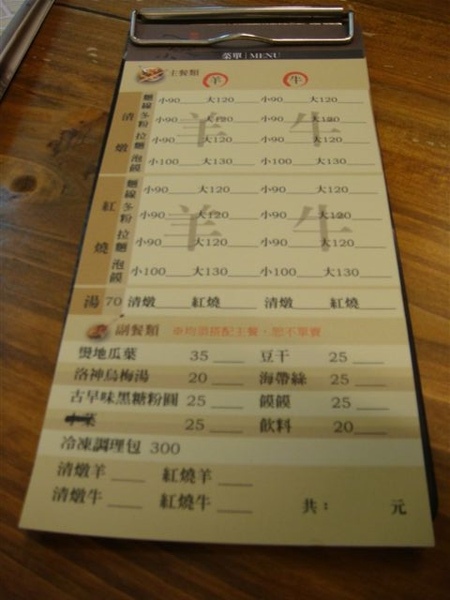 菜單 | MENU
主餐類 羊 牛
清燉 麵線 小90 大120 小90 大120
冬粉 小90 大120 小90 大120
拉麵 小90 大120 小90 大120
泡饃 小100 大130 小100 大130
羊 牛
紅燒 麵線 小90 大120 小90 大120
冬粉 小90 大120 小90 大120
拉麵 小90 大120 小90 大120
泡饃 小100 大130 小100 大130
羊 牛
湯 70 清燉 紅燒 清燉 紅燒
副餐類 ※均須搭配主餐，恕不單賣
燙地瓜葉 35 豆干 25
洛神烏梅湯 20 海帶絲 25
古早味黑糖粉圓 25 饃饃 25
25 飲料 20
冷凍調理包 300
清燉羊 紅燒羊
清燉牛 紅燒牛 共： 元